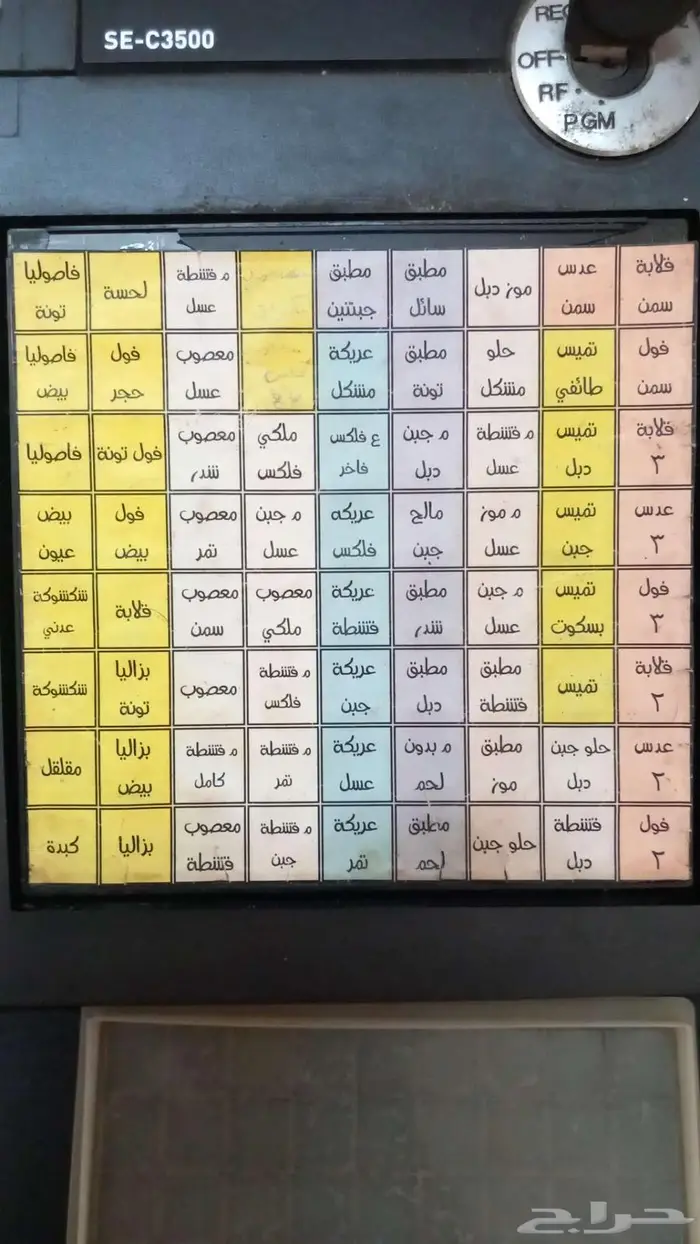 SE-C3500
REG
OFF
RF
PGM
قلابة
سمن
عدس
سمن
موز دبل
مطبق
سائل
مطبق
جبنتين
م قشطة
عسل
لحسة
فاصوليا
تونة
فول
سمن
تميس
طائفي
حلو
مشكل
مطبق
تونة
عريكة
مشكل
معصوب
عسل
فول
حجر
فاصوليا
بيض
قلابة
٣
تميس
دبل
م قشطة
عسل
م جبن
دبل
ع فلكس
فاخر
ملكي
فلكس
معصوب
شدر
فول تونة
فاصوليا
عدس
٣
تميس
جبن
م موز
عسل
مالح
جبن
عريكه
فلكس
م جبن
عسل
معصوب
تمر
فول
بيض
بيض
عيون
فول
٣
تميس
بسكوت
م جبن
عسل
مطبق
شدر
عريكة
قشطة
معصوب
ملكي
معصوب
سمن
قلابة
شكشوكة
عدني
قلابة
٢
تميس
مطبق
قشطة
مطبق
دبل
عريكة
جبن
م قشطة
فلكس
معصوب
بزاليا
تونة
شكشوكة
عدس
٢
حلو جبن
دبل
مطبق
موز
م بدون
لحم
عريكة
عسل
م قشطة
تمر
م قشطة
كامل
بزاليا
بيض
مقلقل
فول
٢
قشطة
دبل
حلو جبن
مطبق
لحم
عريكة
تمر
م قشطة
جبن
معصوب
قشطة
بزاليا
كبدة
حراج